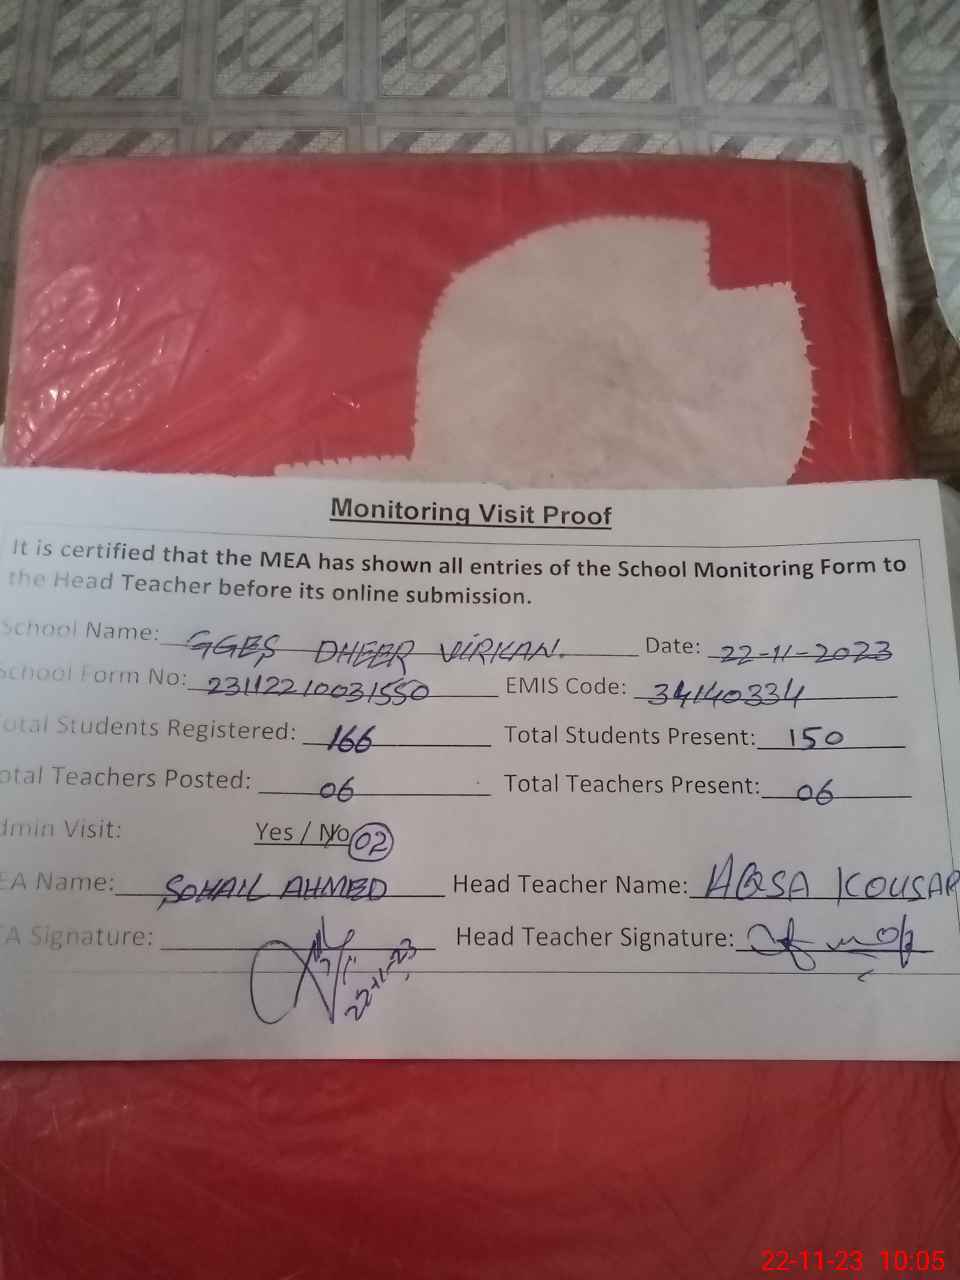 Monitoring Visit Proof
It is certified that the MEA has shown all entries of the School Monitoring Form to
the Head Teacher before its online submission.
School Name: GGES DHEER VIRKAN. Date: 22-11-2023
School Form No: 23112210031550 EMIS Code: 34140334
otal Students Registered: 166 Total Students Present: 150
otal Teachers Posted: 06 Total Teachers Present: 06
dmin Visit: Yes / No 02
EA Name: SOHAIL AHMED Head Teacher Name: AQSA KOUSAR
EA Signature: Head Teacher Signature:
22-11-23
22-11-23 10:05